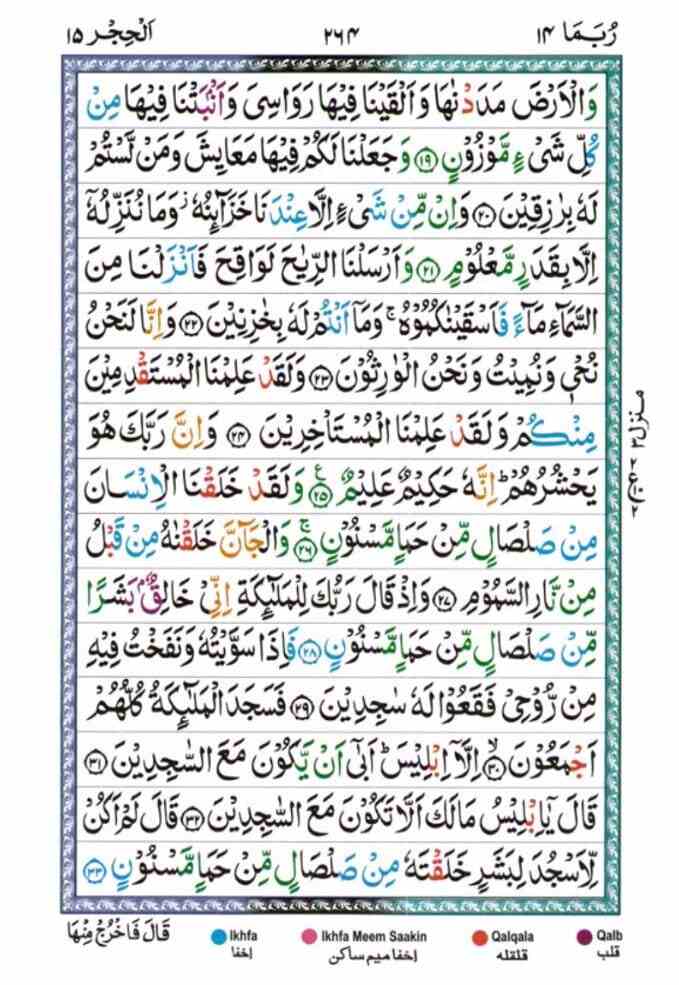 رُبَمَا ١٤ ٢٦٤ اَلْحِجْر ١٥
وَالْاَرْضَ مَدَدْنٰهَا وَاَلْقَيْنَا فِيْهَا رَوَاسِىَ وَاَنْۢبَتْنَا فِيْهَا مِنْ
كُلِّ شَىْءٍ مَّوْزُوْنٍ ﴿۱۹﴾ وَجَعَلْنَا لَكُمْ فِيْهَا مَعَايِشَ وَمَنْ لَّسْتُمْ
لَهٗ بِرٰزِقِيْنَ ﴿۲۰﴾ وَاِنْ مِّنْ شَىْءٍ اِلَّا عِنْدَنَا خَزَآئِنُهٗ ؗ وَمَا نُنَزِّلُهٗۤ
اِلَّا بِقَدَرٍ مَّعْلُوْمٍ ﴿۲۱﴾ وَاَرْسَلْنَا الرِّيٰحَ لَوَاقِحَ فَاَنْزَلْنَا مِنَ
السَّمَآءِ مَآءً فَاَسْقَيْنٰكُمُوْهُ ۚ وَمَاۤ اَنْتُمْ لَهٗ بِخٰزِنِيْنَ ﴿۲۲﴾ وَاِنَّا لَنَحْنُ
نُحْىٖ وَنُمِيْتُ وَنَحْنُ الْوٰرِثُوْنَ ﴿۲۳﴾ وَلَقَدْ عَلِمْنَا الْمُسْتَقْدِمِيْنَ
مِنْكُمْ وَلَقَدْ عَلِمْنَا الْمُسْتَاْخِرِيْنَ ﴿۲۴﴾ وَاِنَّ رَبَّكَ هُوَ
يَحْشُرُهُمْ ؕ اِنَّهٗ حَكِيْمٌ عَلِيْمٌ ﴿۲۵﴾ ع وَلَقَدْ خَلَقْنَا الْاِنْسَانَ
مِنْ صَلْصَالٍ مِّنْ حَمَاٍ مَّسْنُوْنٍ ۚ ﴿۲۶﴾ وَالْجَآنَّ خَلَقْنٰهُ مِنْ قَبْلُ
مِنْ نَّارِ السَّمُوْمِ ﴿۲۷﴾ وَاِذْ قَالَ رَبُّكَ لِلْمَلٰٓئِكَةِ اِنِّىْ خَالِقٌۢ بَشَرًا
مِّنْ صَلْصَالٍ مِّنْ حَمَاٍ مَّسْنُوْنٍ ﴿۲۸﴾ فَاِذَا سَوَّيْتُهٗ وَنَفَخْتُ فِيْهِ
مِنْ رُّوْحِىْ فَقَعُوْا لَهٗ سٰجِدِيْنَ ﴿۲۹﴾ فَسَجَدَ الْمَلٰٓئِكَةُ كُلُّهُمْ
اَجْمَعُوْنَ ۙ ﴿۳۰﴾ اِلَّاۤ اِبْلِيْسَ ؕ اَبٰٓى اَنْ يَّكُوْنَ مَعَ السّٰجِدِيْنَ ﴿۳۱﴾
قَالَ يٰۤاِبْلِيْسُ مَا لَكَ اَلَّا تَكُوْنَ مَعَ السّٰجِدِيْنَ ﴿۳۲﴾ قَالَ لَمْ اَكُنْ
لِّاَسْجُدَ لِبَشَرٍ خَلَقْتَهٗ مِنْ صَلْصَالٍ مِّنْ حَمَاٍ مَّسْنُوْنٍ ﴿۳۳﴾
منزل ٣
ع ٢
قَالَ فَاخْرُجْ مِنْهَا
Ikhfa Ikhfa Meem Saakin Qalqala Qalb
إخفا إخفا ميم ساكن قلقله قلب